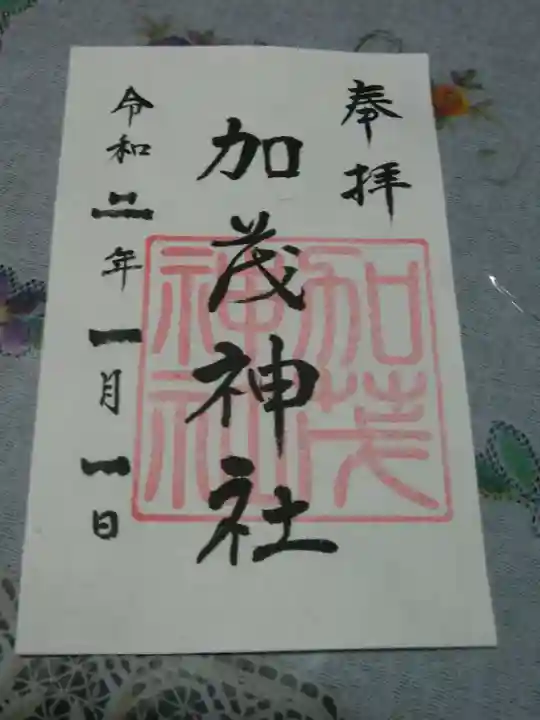 奉拝
加茂神社
加茂
神社
令和二年一月一日